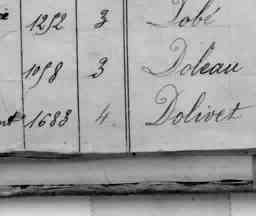 1292 3 Dobé
1098 3 Doleau
1683 4 Dolivet